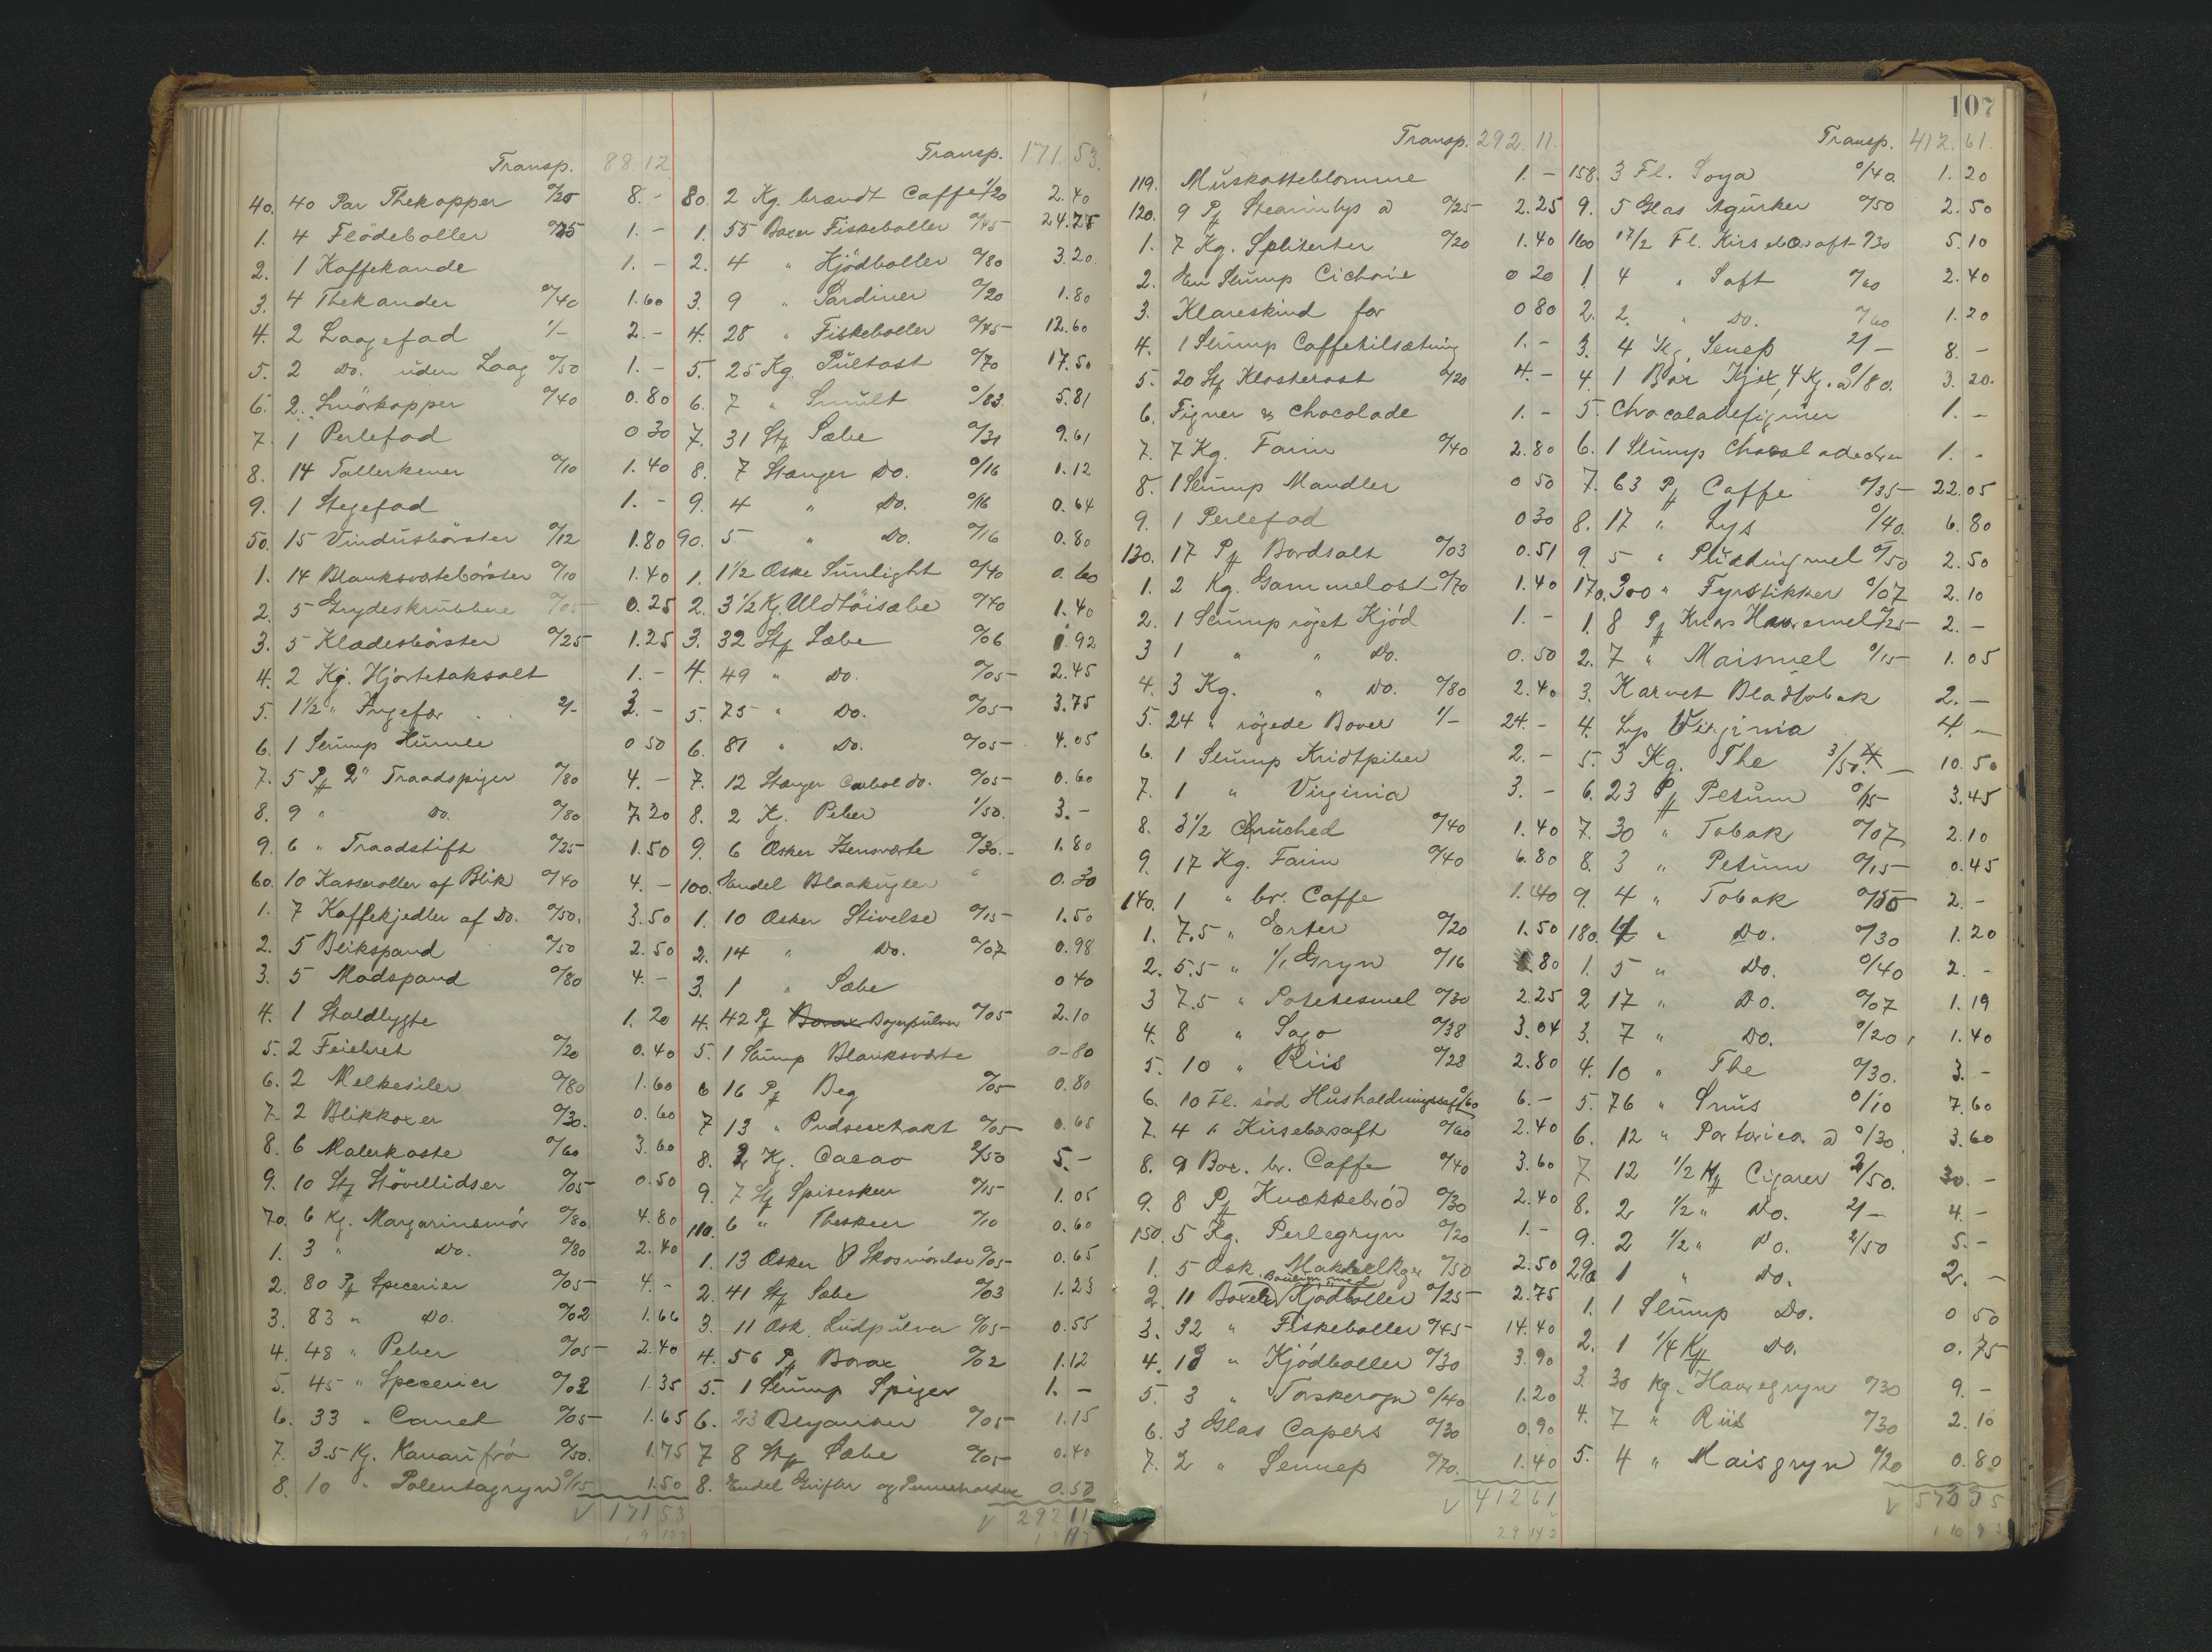 Transp. 88.12
40. 40 Par Thekopper 0/20 8.-
1. 4 Flödeboller 0/25 1.-
2. 1 Kaffekande 1.-
3. 4 Thekander 0/40 1.60
4. 2 Laagefad 1/- 2.-
5. 2 Do. uden Laag 0/50 1.-
6. 2 Smörkopper 0/40 0.80
7. 1 Perlefad 0 30
8. 14 Tallerkener 0/10 1.40
9. 1 Stegefad 1.-
50. 15 Vindusbörster 0/12 1.80
1. 14 Blanksvertebörster 0/10 1.40
2. 5 Grydeskrubbere 0/05 0.25
3. 5 Klædesbörster 0/25 1.25
4. 2 Kg. Hjortetaksalt 1.-
5. 1½ " Ingefær 2/- 3.-
6. 1 Slump Humle 0 50
7. 5 Pk 2" Traadspiger 0/80 4.-
8. 9 " Do. 0/80 7.20
9. 6 " Traadstift 0/25 1.50
60. 10 Kasseroller af Blik 0/40 4.-
1. 7 Kaffekjedler af Do. 0/50. 3.50
2. 5 Blikspand 0/50 2.50
3. 5 Madspand 0/80 4.-
4. 1 Staldlygte 1.20
5. 2 Feiebret 0/20 0.40
6. 2 Melkesiler 0/80 1.60
7. 2 Blikkoxer 0/30. 0.60
8. 6 Malerkoste 0/60 3.60
9. 10 Stk Stövellidser 0/05 0.50
70. 6 Kg. Margarinsmör 0/80. 4.80
1. 3 " Do. 0/80 2.40
2. 80 Pk Specerier 0/05 4.-
3. 83 " Do. 0/02 1.66
4. 48 " Peber 0/05 2.40
5. 45 " Specerier 0/03 1.35
6. 33 " Canel 0/05 1.65
7. 3.5 Kg. Kanarifrö 0/50. 1.75
8. 10 " Polentagryn 0/15 1.50
V 171 53
Transp. 171.53.
80. 2 Kg. brændt Caffe 1/20 2.40
1. 55 Boxer Fiskeboller 0/45 24.75
2. 4 " Kjödboller 0/80 3.20
3. 9 " Sardiner 0/20 1.80
4. 28 " Fiskeboller 0/45 12.60
5. 25 Kg. Pultost 0/70 17.50
6. 7 " Smult 0/83. 5.81
7. 31 Stk Sæbe 0/31 9.61
8. 7 Stænger Do. 0/16 1.12
9. 4 " Do. 0/16 0.64
90. 5 " Do. 0/16 0.80
1. 1½ Æske Sunlight 0/40 0.60
2. 3½ Kg. Uldtöisæbe 0/40 1.40
3. 32 Stk Sæbe 0/06 1.92
4. 49 " Do. 0/05 2.45
5. 75 " Do. 0/05 3.75
6. 81 " Do. 0/05 4.05
7. 12 Stænger Carbol do. 0/05 0.60
8. 2 Kg. Peber 1/50. 3.-
9. 6 Æsker Stensverte 0/30. 1.80
100. Endel Blaakugler 0.30
1. 10 Æsker Stivelse 0/15 1.50
2. 14 " Do. 0/07 0.98
3. 1 " Sæbe 0 40
4. 42 Pk Borax Bagepulver 0/05 2.10
5. 1 Slump Blanksværte 0-80
6 16 Pk Beg 0/05 0.80
7 13 " Pudseextrakt 0/05 0.65
8. 2 Kg. Cacao 2/50 5.-
9. 7 Stk Spiseskeer 0/15 1.05
110. 6 " Theskeer 0/10 0.60
1. 13 Æsker Skosmörelse 0/05 0.65
2. 41 Stk Sæbe 0/03 1.23
3. 11 Æsk. Ludpulver 0/05 0.55
4. 56 Pk Borax 0/02 1.12
5. 1 Slump Spiger 1.-
6. 23 Blyanter 0/05 1.15
7 8 Stk Sæbe 0/05 0.40
8. Endel Grifler og Penneholdere 0.50
V 292 11
Transp. 292.11.
119. Muskatteblomme 1.-
120. 9 Pk Stearinlys a 0/25 2.25
1. 7 Kg. Spliterter 0/20 1.40
2. En Slump Cichorie 0 20
3. Klareskind for 0 80
4. 1 Slump Caffetilsætning 1.-
5. 20 Stk Klosterost 0/20 4.-
6. Figner & Chocolade 1.-
7. 7 Kg. Farin 0/40 2.80
8. 1 Slump Mandler 0 50
9. 1 Perlefad 0 30
130. 17 Pk Bordsalt 0/03 0.51
1. 2 Kg. Gammelost 0/70 1.40
2. 1 Slump röget Kjöd 1.-
3 1 " " Do. 0.50
4. 3 Kg. " Do. 0/80 2.40
5. 24 " rögede Bover 1/- 24.-
6. 1 Slump Kridtpiber 2.-
7. 1 " Virginia 3.-
8. 3½ Cruched 0/40 1.40
9. 17 Kg. Farin 0/40 6.80
140. 1 " br. Caffe 1.40
1. 7.5 " Erter 0/20 1.50
2. 5.5 " 1/1 Gryn 0/16 .80
3 7.5 " Potetesmel 0/30 2.25
4. 8 " Sago 0/38 3.04
5. 10 " Riis 0/28 2.80
6. 10 Fl. söd Husholdningssaft 0/60 6.-
7. 4 " Kirsebærsaft 0/60 2.40
8. 9 Box. br. Caffe 0/40 3.60
9. 8 Pk Knækkebröd 0/30 2.40
150. 5 Kg. Perlegryn 0/20 1.-
1. 5 Æsk. 0/50 2.50
2. 11 Boxer Bouillon med Kjödboller 0/25 2.75
3. 32 " Fiskeboller 0/45 14.40
4. 13 " Kjödboller 0/30 3.90
5. 3 " Torskerogn 0/40 1.20
6. 3 Glas Capers 0/30 0.90
7. 2 " Sennep 0/70. 1.40
V 412 61
107
Transp. 412.61.
158. 3 Fl. Soya 0/40. 1.20
9. 5 Glas Agurker 0/50 2.50
160 17/2 Fl. Kirsebærsaft 0/30 5.10
1. 4 " Saft 0/60 2.40
2. 2. " Do. 0/60 1.20
3. 4 Kg. Senep 2/- 8.-
4. 1 Box Kjex, 4 Kg. a 0/80. 3.20.
5. Chocoladefigurer 1.-
6. 1 Slump 1.-
7. 63 Pk Caffe 0/35 22.05
8. 17 " Lys 0/40. 6.80
9. 5 " Puddingmel 0/50 2.50
170. 300 " Fyrstikker 0/07 2.10
1. 8 Pk Knors Havremel 0/25 2.-
2. 7 " Maismel 0/15 1.05
3. Karvet Bladtobak 2.-
4. Lys Virginia 4.-
5. 3 Kg. The 3/50. 10.50
6. 23 Pk Petum 0/15 3.45
7. 30 " Tobak 0/07 2.10
8. 3 " Petum 0/15 0.45
9. 4 " Tobak 0/50 2.-
180. 4 " Do. 0/30 1.20
1. 5 " Do. 0/40 2.-
2 17 " Do. 0/07 1.19
3. 7 " Do. 0/20 1.40
4. 10 " The 0/30. 3.-
5. 76 " Snus 0/10 7.60
6. 12 " Portorico a 0/30 3.60
7 12 1/2 Kk Cigarer 2/50. 30.-
8. 2 1/2 " Do. 2/- 4.-
9. 2 1/2 " Do. 2/50 5.-
290 1 " Do. 2.-
1. 1 Slump Do. 0 50
2. 1 1/4 Kk Do. 0.75
3. 30 Kg. Havregryn 0/30 9.-
4. 7 " Riis 0/30 2.10
5. 4 " Maisgryn 0/20 0.80